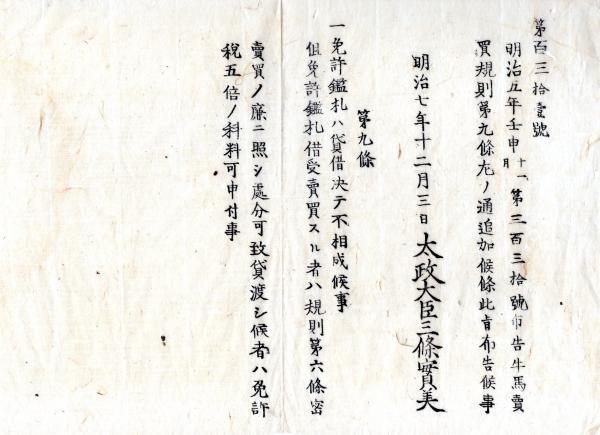 第百三拾壹號
明治五年壬申十一月第三百三拾號布告牛馬賣
買規則第九條左ノ通追加候條此旨布告候事
明治七年十二月三日太政大臣三條實美
第九條
一免許鑑札ハ貸借決テ不相成候事
但免許鑑札借受賣買スル者ハ規則第六條密
賣買ノ廉ニ照シ處分可致貸渡シ候者ハ免許
税五倍ノ科料可申付事